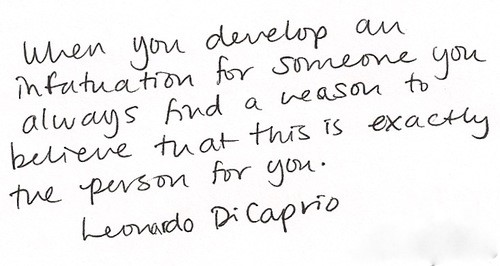 When you develop an
infatuation for someone you
always find a reason to
believe that this is exactly
the person for you.
Leonardo DiCaprio